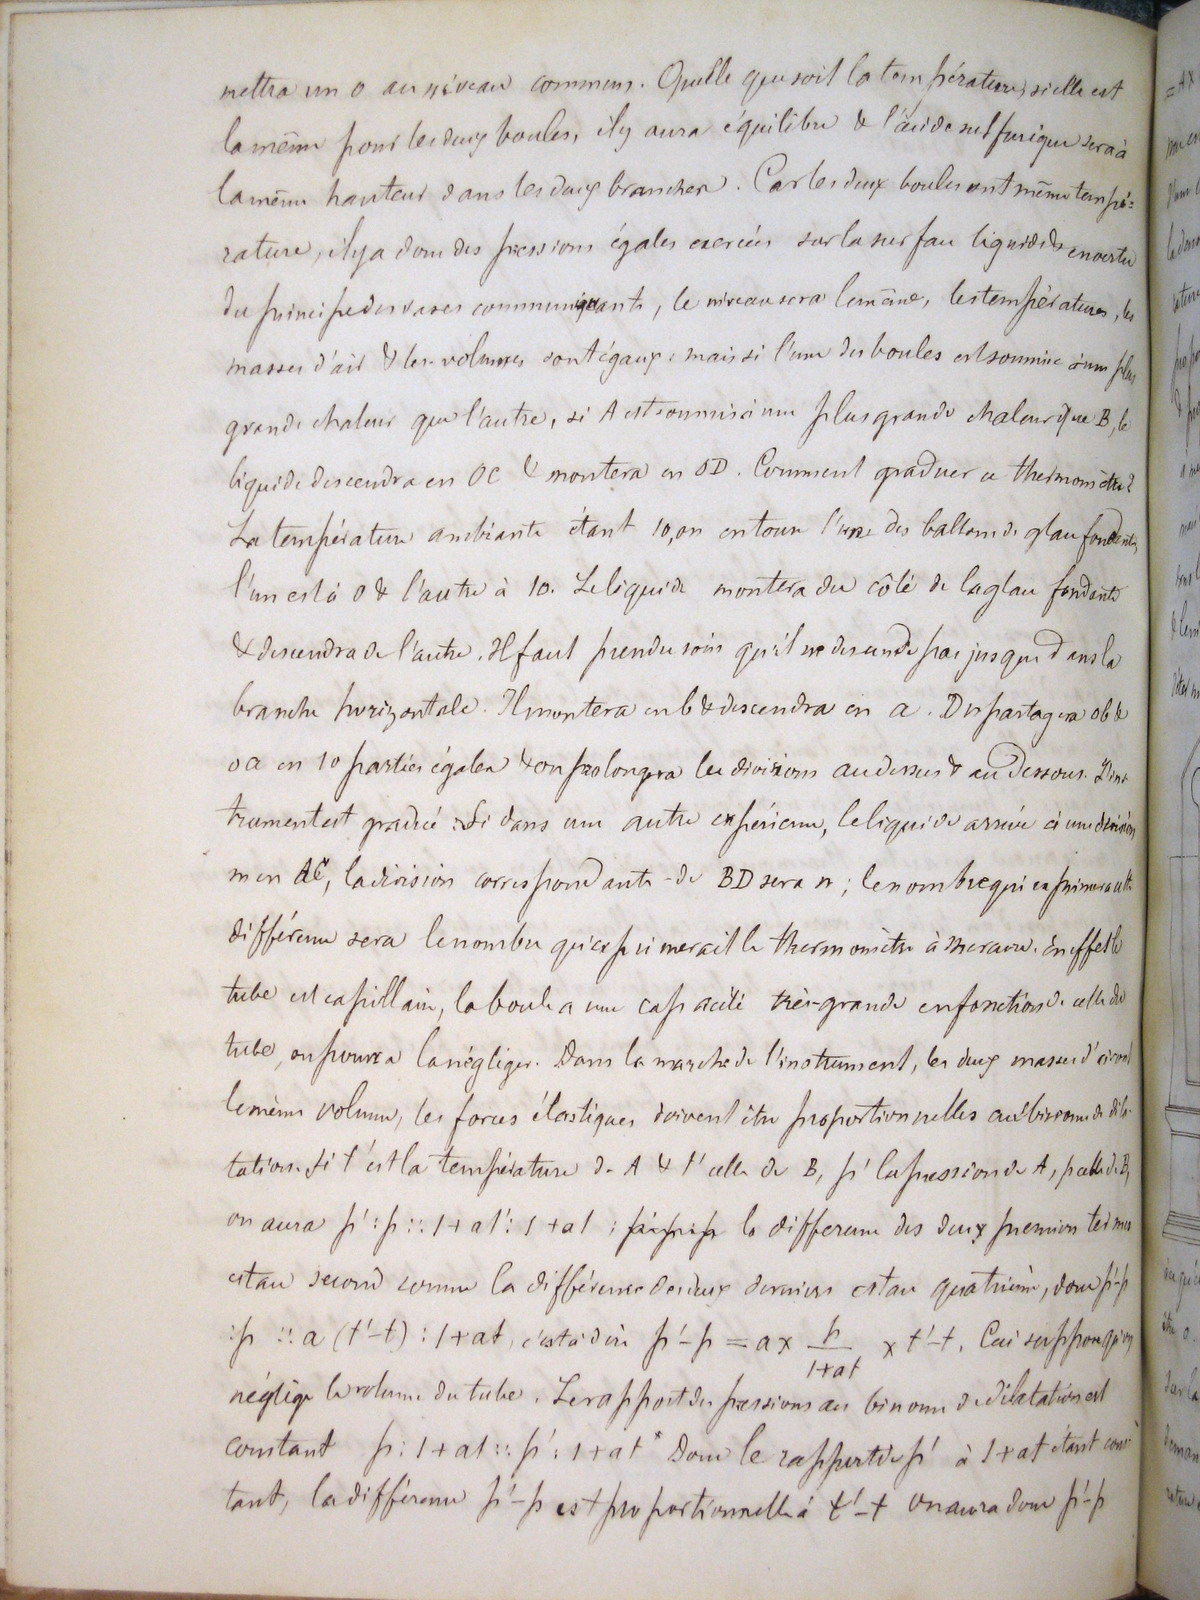 mettra un 0 au niveau commun. Quelle que soit la température, si elle est
la même pour les deux boules, il y aura équilibre & l'acide sulfurique sera à
la même hauteur dans les deux branches. Car les deux boules ont même tempé=
rature, il y a donc des pressions égales exercées sur la surface liquide & en vertu
du principe des vases communiquants, le niveau sera le même, les températures, les
masses d'air & les volumes sont égaux; mais si l'une des boules est soumise à une plus
grande chaleur que l'autre, si A est soumis à une plus grande chaleur que B, le
liquide descendra en OC & montera en OD. Comment graduer ce thermomètre?
La température ambiante étant 10, on entoure l'un des ballons de glace fondante,
l'un est à 0 & l'autre à 10. Le liquide montera du côté de la glace fondante
& descendra de l'autre. Il faut prendre soin qu'il ne descende pas jusque dans la
branche horizontale. Il montera en b & descendra en a. On partagera ob &
oa en 10 parties égales & on prolongera les divisions au dessus & au dessous. L'ins-
trument est gradué. Si dans une autre expérience, le liquide arrive à une division
m en AC, la division correspondante de BD sera n; le nombre qui exprimera cette
différence sera le nombre qu'exprimerait le thermomètre à mercure. En effet le
tube est capillaire, la boule a une capacité très-grande en fonction de celle du
tube, on pourra la négliger. Dans la marche de l'instrument, les deux masses d'air ont
le même volume, les forces élastiques doivent être proportionnelles au binome de dila-
tation. Si t' est la température de A & t celle de B, p' la pression de A, p celle de B,
on aura p' : p :: 1 + at' : 1 + at ; la difference des deux premiers termes
est au second comme la différence des deux derniers est au quatrième, donc p'-p
: p :: a (t'-t) : 1+at, c'est à dire p'-p = a × p/1+at × t'-t. Ceci suppose qu'on
néglige le volume du tube. Le rapport des pressions au binome de dilatation est
constant p : 1 + at :: p' : 1 + at' Donc le rapport de p' à 1+at étant cons-
tant, la différence p'-p est proportionnelle à t'-t on aura donc p'-p